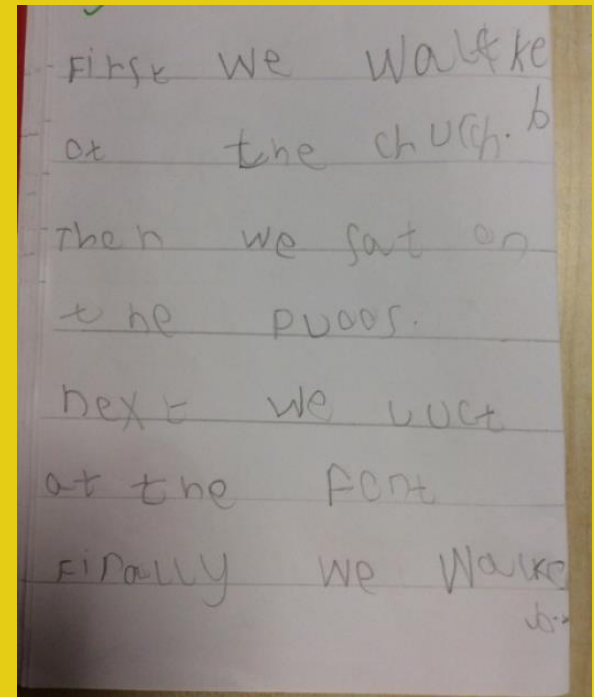 First we walke
at the church. b
Then we sat on
the puoos.
next we uuct
at the font
Finally we walke
b..